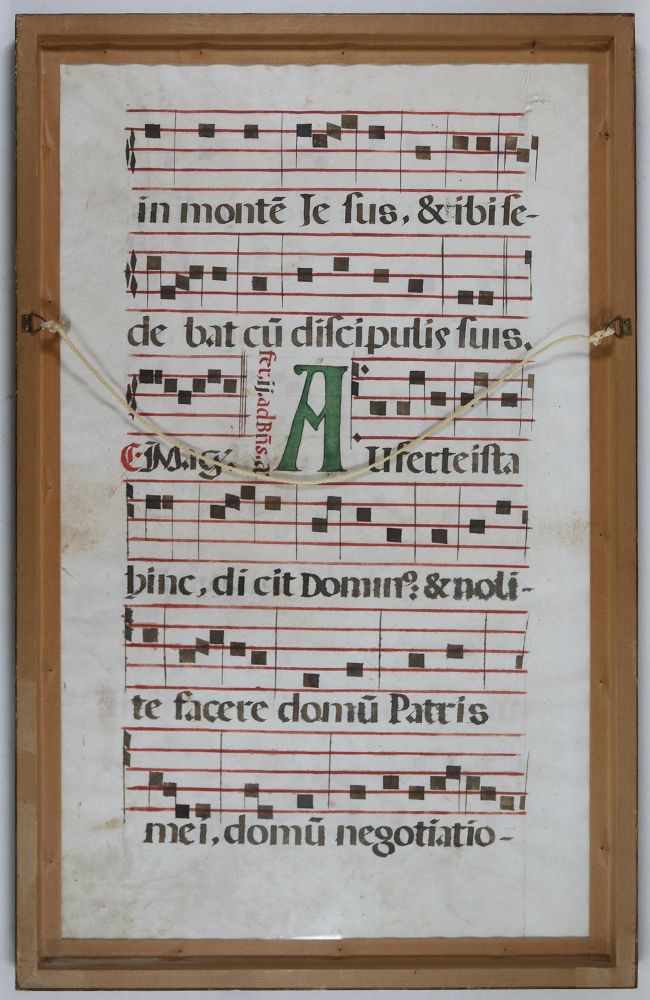 in montē Je sus, & ibi se-
de bat cū discipulis suis.
fer. ij. ad Bñs. a
Mag. A Uferte ista
hinc, di cit Dominꝰ: & noli-
te facere domū Patris
mei, domū negotiatio-